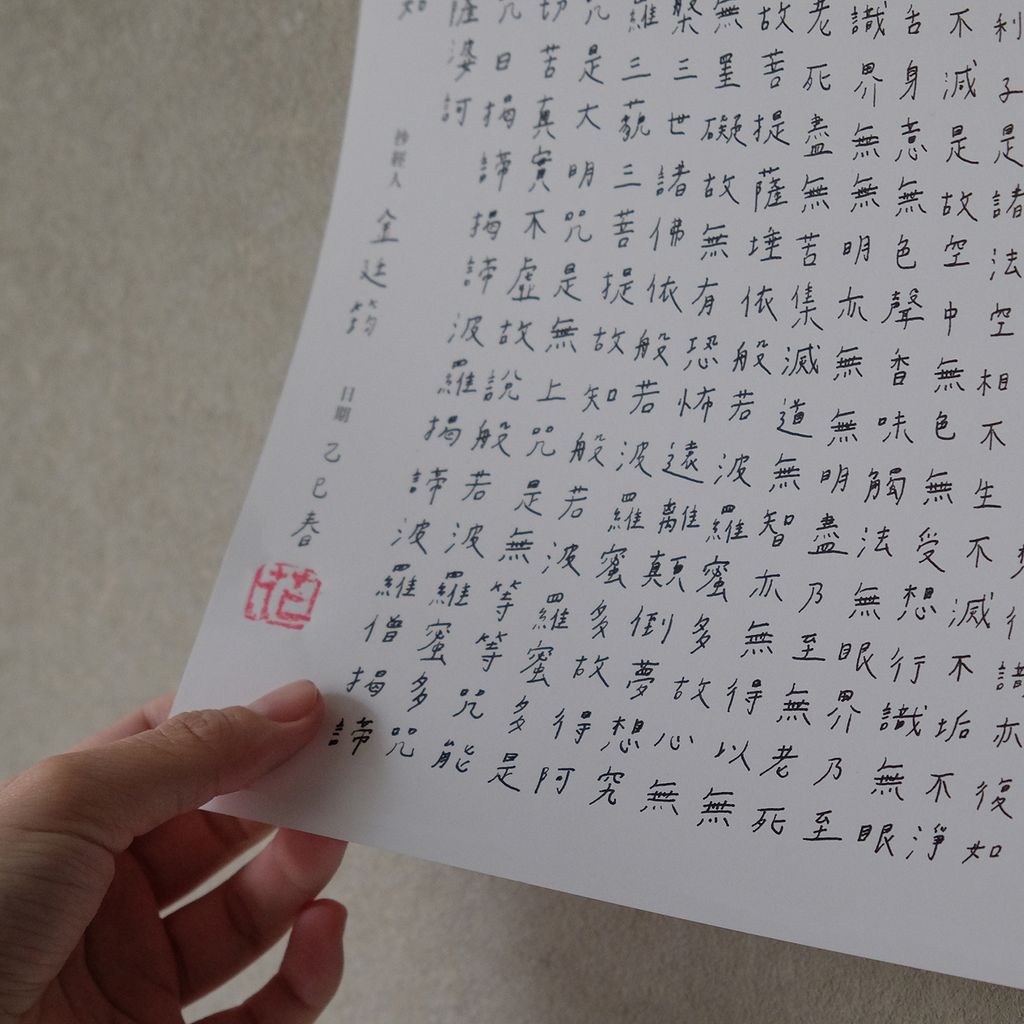 行識亦復如
利子是諸法空相不生不滅不垢不淨
不減是故空中無色無受想行識無眼
舌身意無色聲香味觸法無眼界乃至
識界無無明亦無無明盡乃至無老死
老死盡無苦集滅道無智亦無得以無
故菩提薩埵依般若波羅蜜多故心無
無罣礙故無有恐怖遠離顛倒夢想究
槃三世諸佛依般若波羅蜜多故得阿
羅三藐三菩提故知般若波羅蜜多是
咒是大明咒是無上咒是無等等咒能
切苦真實不虛故說般若波羅蜜多咒
咒曰揭諦揭諦波羅揭諦波羅僧揭諦
薩婆訶
抄經人 金廷筠 日期 乙巳春